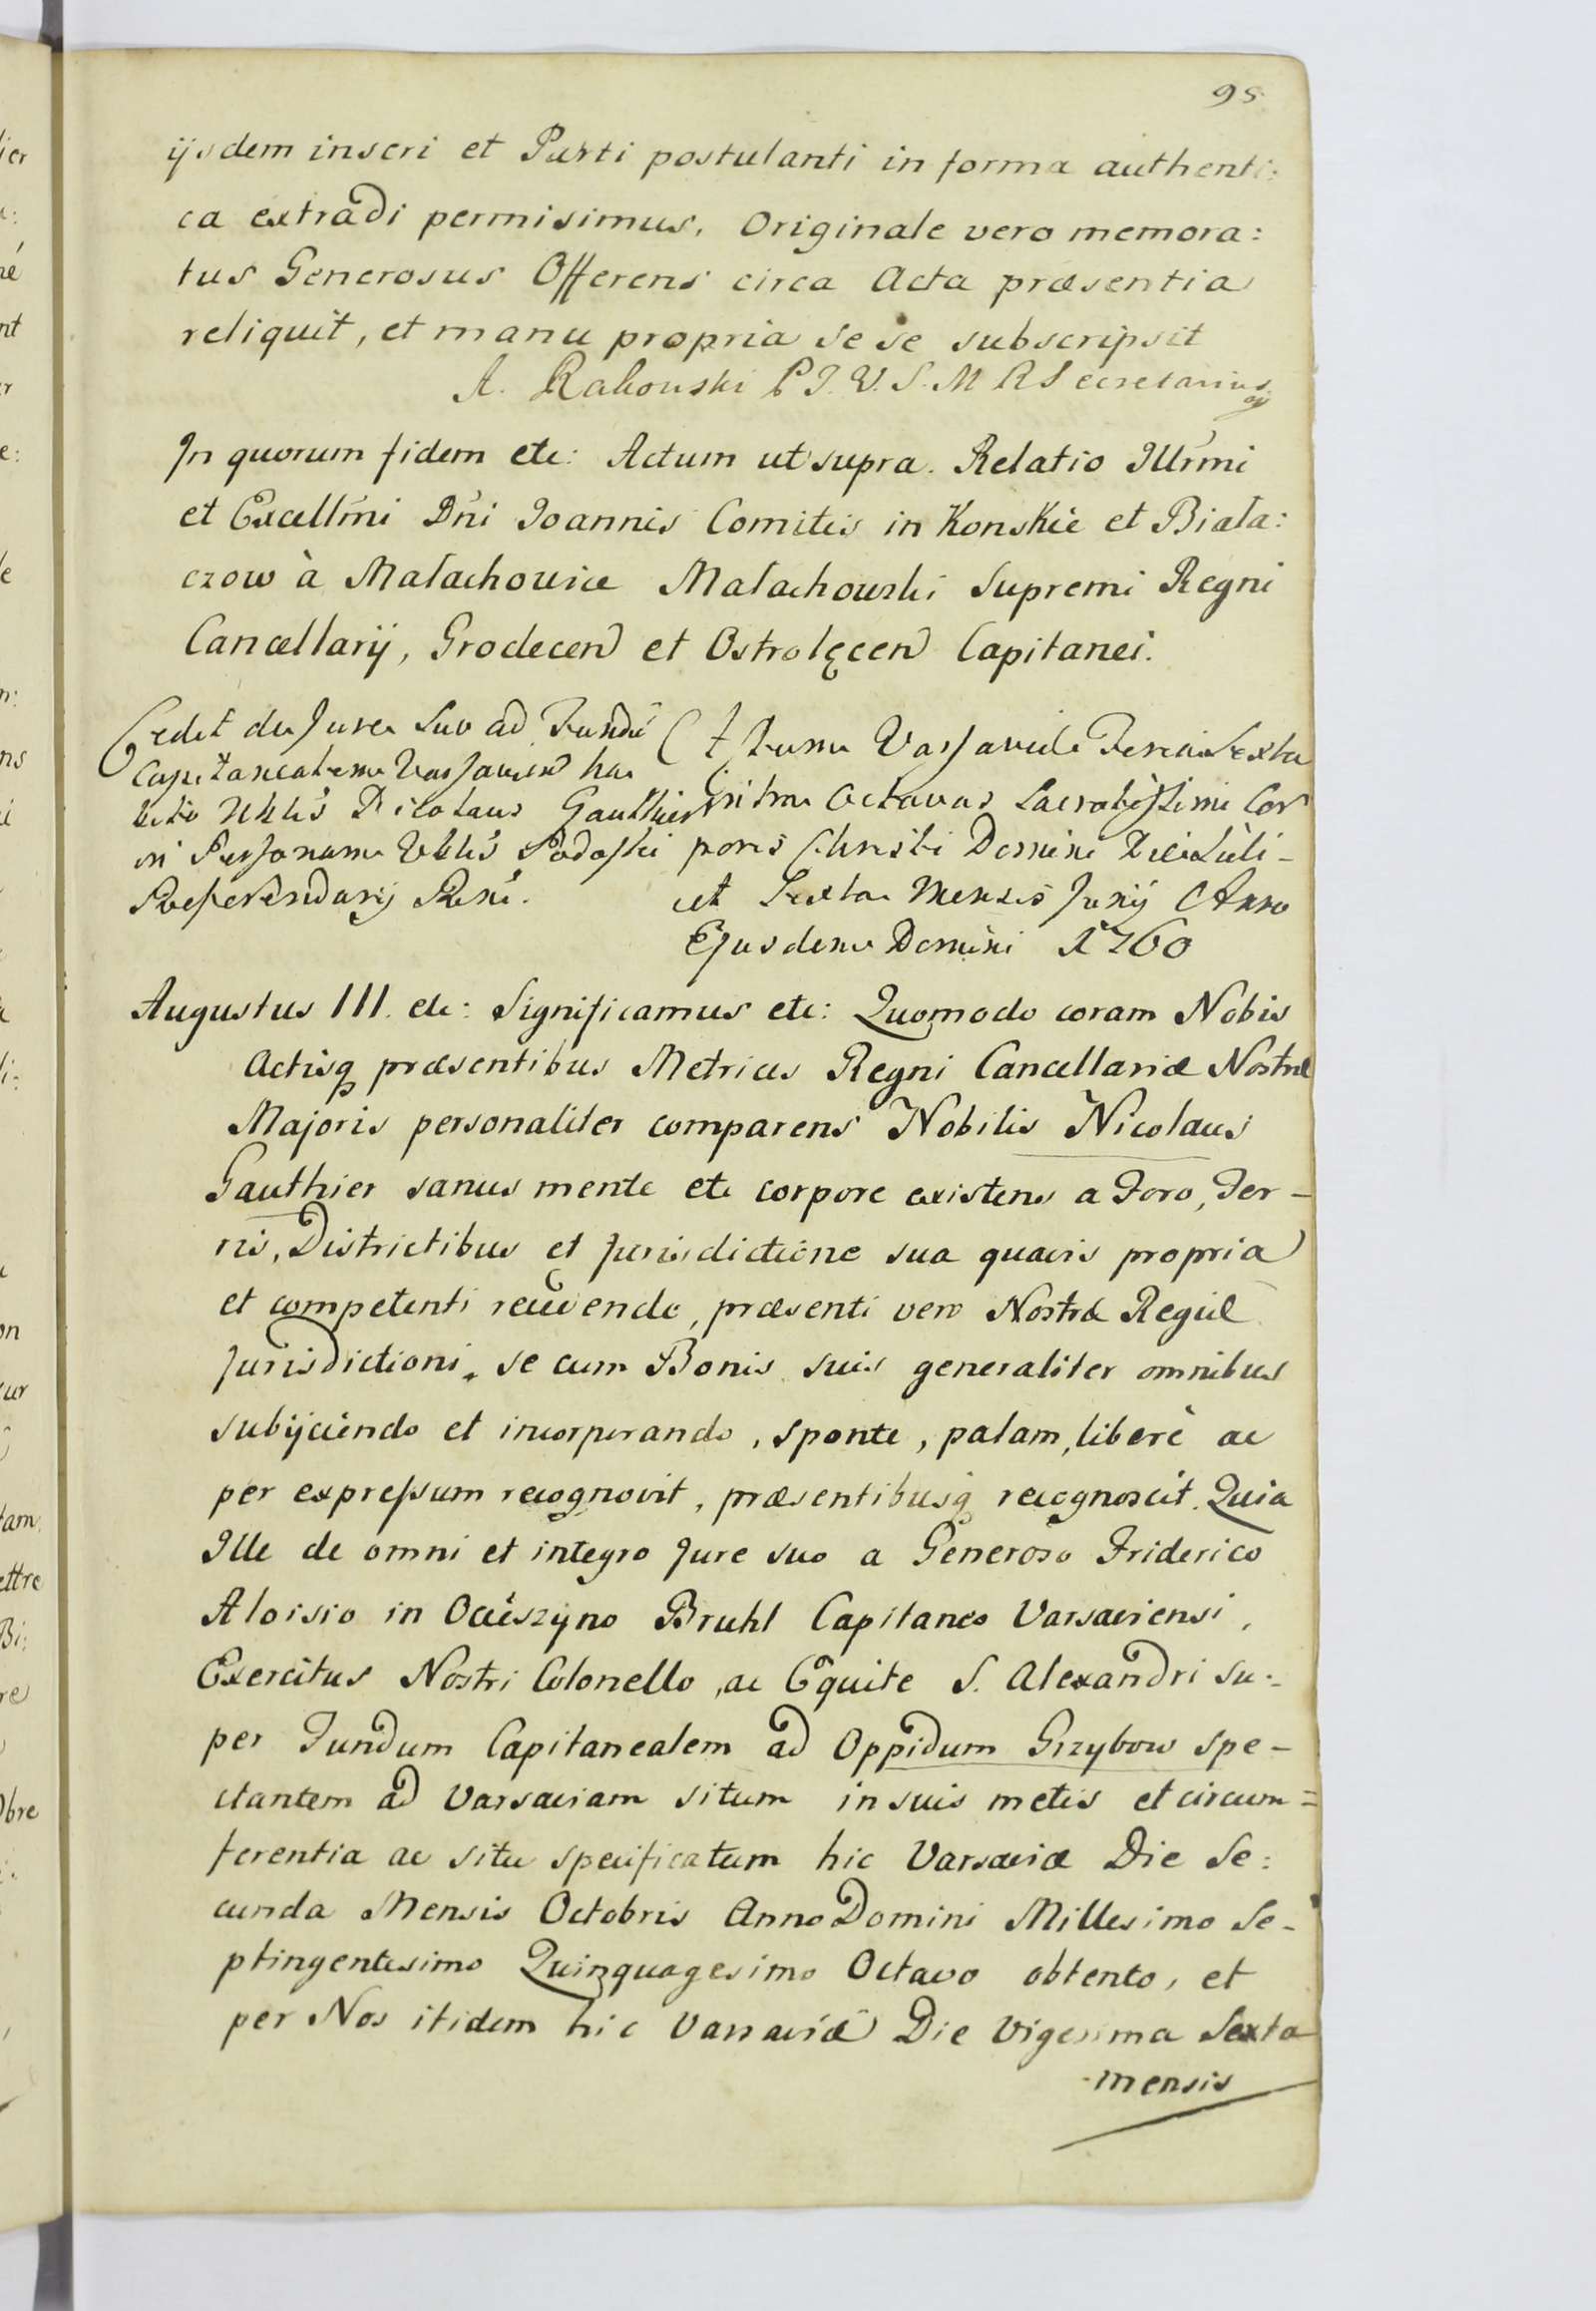 95
ijsdem inseri et Parti postulanti in forma authenti:
ca extradi permisimus, Originale vero memora:
tus Generosus Offerens circa Acta præsentia
reliquit, et manu propria se se subscripsit
A. Rakowski P J. V. S. M R Secretarius
In quorum fidem etc: Actum ut supra. Relatio Illrmi
et Excellmi Dni Joannis Comitis in Konskie et Biala:
czow à Malachowice Malachowski Supremi Regni
Cancellarij, Grodecen et Ostrolęcen Capitanei.
Cedit de Jure Suo ad Fundū
Capitanealem Varsavien ha
bito Nblis Nicolaus Gauthier
in Personam Podoski
Referendarij Rni.
Actum Varsaviæ Feria Sexta
intra Octavas Sacratissimi Cor
poris Christi Domini Dei
et Sexta Mensis Junij Anno
Ejusdem Domini 1760
Augustus III. etc: Significamus etc: Quomodo coram Nobis
Actisq præsentibus Metrices Regni Cancellariæ Nostræ
Majoris personaliter comparens Nobilis Nicolaus
Gauthier sanus mente etc corpore existens a Foro, Ter-
ris, Districtibus et Jurisdictione sua quavis propria
et competenti recedendo, præsenti vero Nostræ Regiæ
Jurisdictioni, se cum Bonis suis generaliter omnibus
subijciendo et incorporando, sponte, palam, liberè ac
per expressum recognovit, præsentibusq recognoscit. Quia
Ille de omni et integro Jure suo a Generoso Friderico
Aloisio in Ocieszyno Bruhl Capitaneo Varsaviensi,
Exercitus Nostri Colonello, ac Equite S. Alexandri su:
per Fundum Capitanealem ad Oppidum Grzybow spe-
ctantem ad Varsaviam situm in suis metis et circum=
ferentia ac situ specificatum hic Varsaviæ Die Se:
cunda Mensis Octobris Anno Domini Millesimo Se-
ptingentesimo Quinquagesimo Octavo obtento, et
per Nos itidem hic Varsaviæ Die Vigesima Sexta
mensis